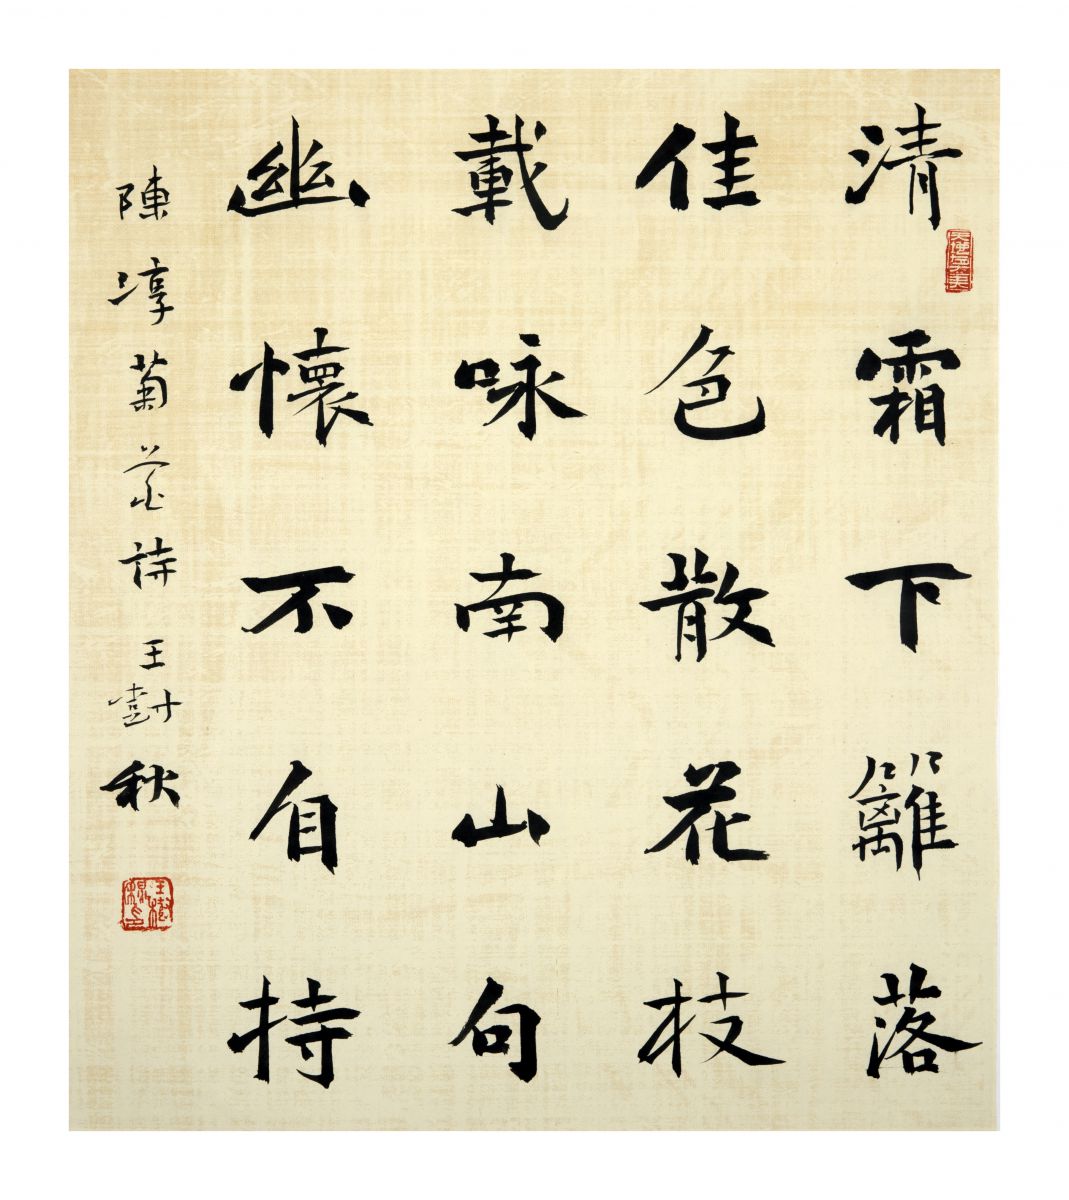 清霜下籬落
佳色散花枝
載咏南山句
幽懷不自持
陳淳菊花詩王尌秋